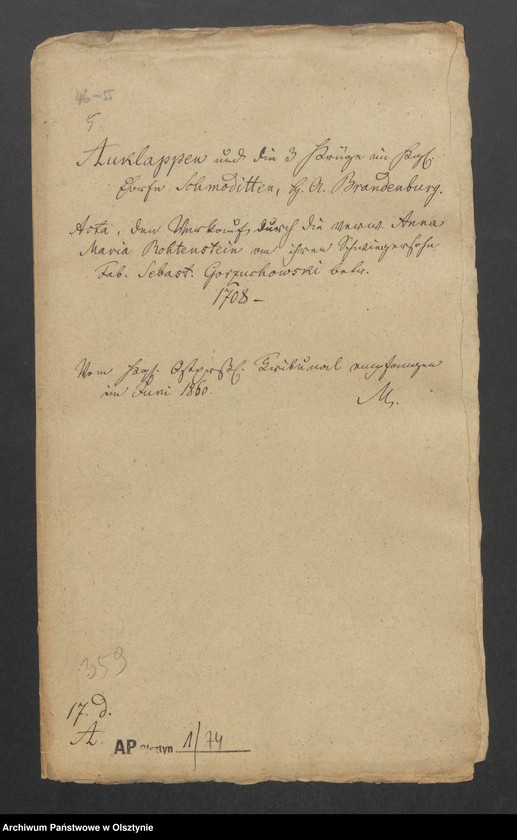 46-55
5.
Auklappen und die 3 Krüge im Kgl.
Dorfe Schmoditten, H. A. Brandenburg.
Acta, den Verkauf durch die verw. Anna
Maria Rohtenstein an ihren Schwiegersohn
Fab. Sebast. Gorzuchowski betr.
1708 –
Vom Kgl. Ostpreuß. Tribunal empfangen
im Juni 1860.
M.
359
17. d.
A.
AP Olsztyn 1/74
Archiwum Państwowe w Olsztynie